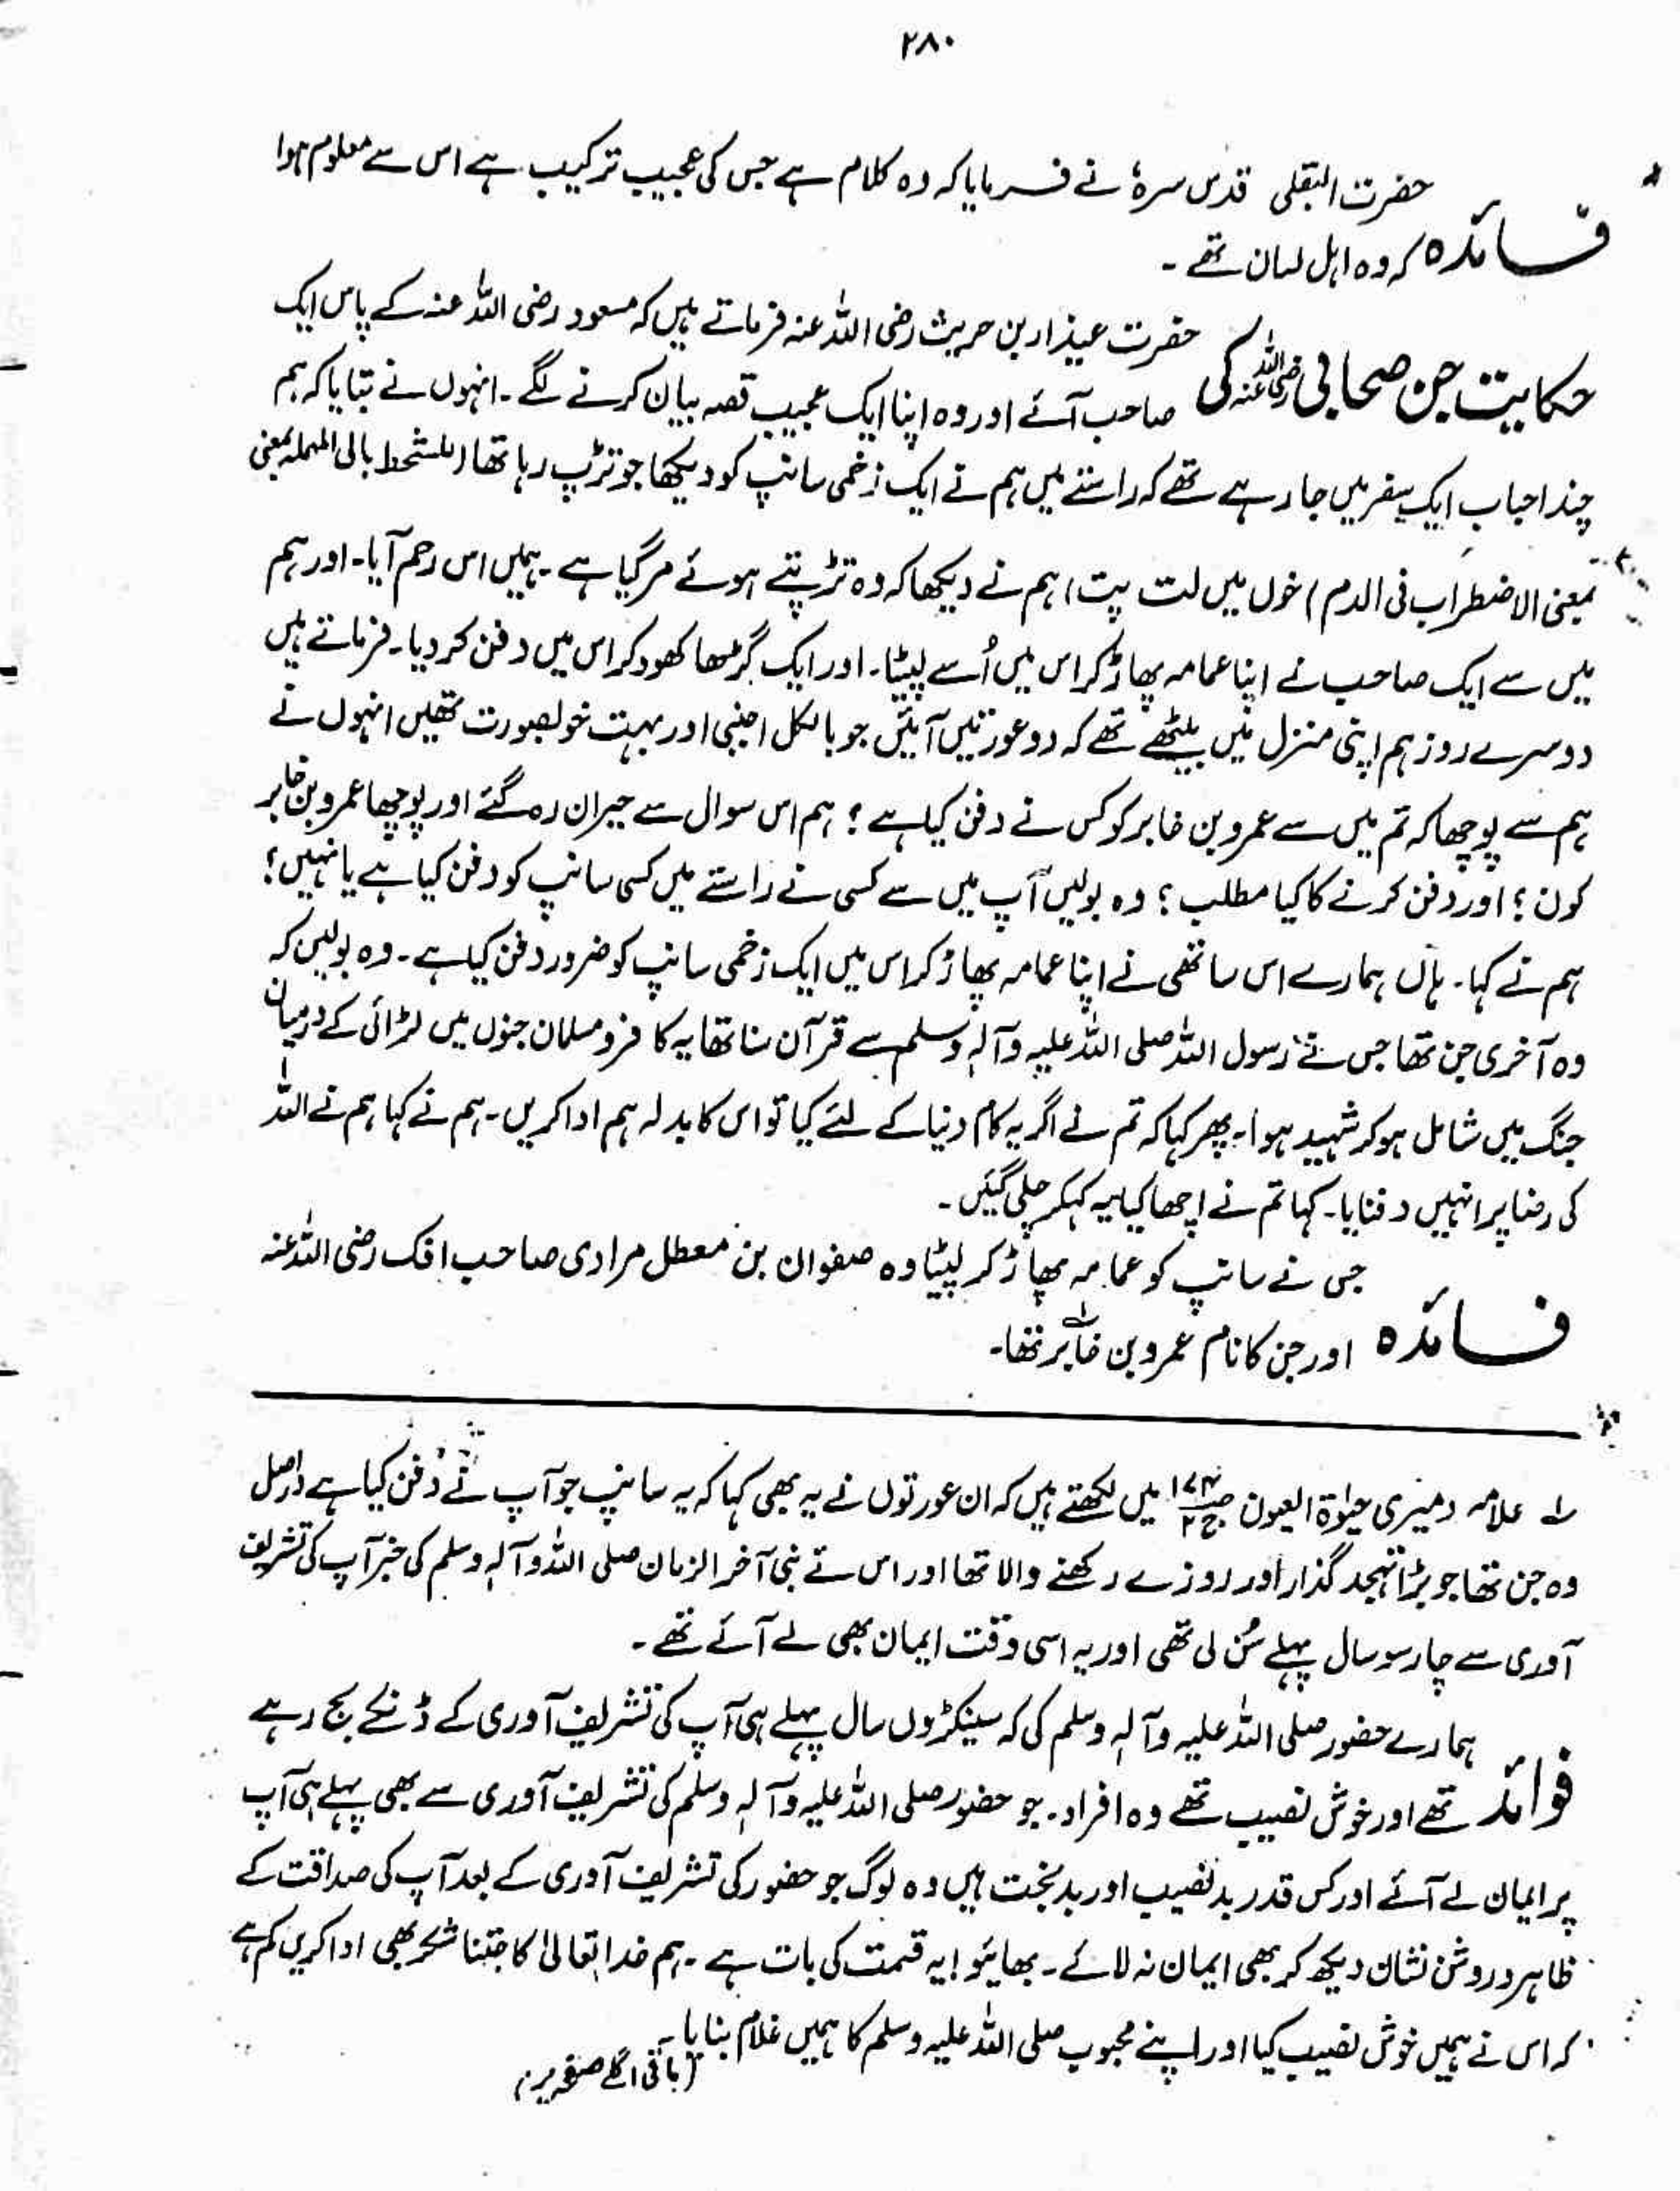 ۲۸۰
حضرت البقلی قدس سرہٗ نے فرمایا کہ وہ کلام ہے جس کی عجیب ترکیب ہے اس سے معلوم ہوا
فائدہ کہ وہ اہل لسان تھے ۔
حضرت عیذار بن حریث رضی اللہ عنہ فرماتے ہیں کہ مسعود رضی اللہ عنہ کے پاس ایک
حکایت جن صحابی رضی اللہ عنہ کی صاحب آئے اور وہ اپنا ایک عجیب قصہ بیان کرنے لگے ۔ انہوں نے بتایا کہ ہم
چند احباب ایک سفر میں جا رہے تھے کہ راستے میں ہم نے ایک زخمی سانپ کو دیکھا جو تڑپ رہا تھا (للشحط بالی المہملہ بمعنی
بمعنی الاضطراب فی الدم) خوں میں لت پت، ہم نے دیکھا کہ وہ تڑپتے ہوئے مر گیا ہے ۔ ہمیں اس رحم آیا ۔ اور ہم
میں سے ایک صاحب نے اپنا عمامہ پھاڑ کر اس میں اُسے لپیٹا ۔ اور ایک گڑھا کھود کر اس میں دفن کر دیا ۔ فرماتے ہیں
دوسرے روز ہم اپنی منزل میں بیٹھے تھے کہ دو عورتیں آئیں جو بالکل اجنبی اور بہت خوبصورت تھیں انہوں نے
ہم سے پوچھا کہ تم میں سے عمرو بن خابر کو کس نے دفن کیا ہے ؟ ہم اس سوال سے حیران رہ گئے اور پوچھا عمرو بن خابر
کون ؟ اور دفن کرنے کا کیا مطلب ؟ وہ بولیں آپ میں سے کسی نے راستے میں کسی سانپ کو دفن کیا ہے یا نہیں ؟
ہم نے کہا ۔ ہاں ہمارے اس ساتھی نے اپنا عمامہ پھاڑ کر اس میں ایک زخمی سانپ کو ضرور دفن کیا ہے ۔ وہ بولیں کہ
وہ آخری جن تھا جس نے رسول اللہ صلی اللہ علیہ وآلہٖ وسلم سے قرآن سنا تھا یہ کافر و مسلمان جنوں میں لڑائی کے درمیان
جنگ میں شامل ہو کر شہید ہوا ۔ پھر کہا کہ تم نے اگر یہ کام دنیا کے لئے کیا تو اس کا بدلہ ہم ادا کریں ۔ ہم نے کہا ہم نے اللہ
کی رضا پر انہیں دفنایا ۔ کہا تم نے اچھا کیا یہ کہکر چلی گئیں ۔
جس نے سانپ کو عمامہ پھاڑ کر لپیٹا وہ صفوان بن معطل مرادی صاحب افک رضی اللہ عنہ
فائدہ اور جن کا نام عمرو بن خابر لہ تھا ۔
لہ علامہ دمیری حیٰوۃ العیون ج۲ میں لکھتے ہیں کہ ان عورتوں نے یہ بھی کہا کہ یہ سانپ جو آپ نے دفن کیا ہے دراصل
وہ جن تھا جو بڑا تہجد گذار اور روزے رکھنے والا تھا اور اس نے نبی آخر الزمان صلی اللہ وآلہٖ وسلم کی خبر آپ کی تشریف
آوری سے چار سو سال پہلے سُن لی تھی اور یہ اسی وقت ایمان بھی لے آئے تھے ۔
ہمارے حضور صلی اللہ علیہ وآلہٖ وسلم کی کہ سینکڑوں سال پہلے ہی آپ کی تشریف آوری کے ڈنکے بج رہے
فوائد تھے اور خوش نصیب تھے وہ افراد ۔ جو حضور صلی اللہ علیہ وآلہٖ وسلم کی تشریف آوری سے بھی پہلے ہی آپ
پر ایمان لے آئے اور کس قدر بدنصیب اور بدبخت ہیں وہ لوگ جو حضور کی تشریف آوری کے بعد آپ کی صداقت کے
ظاہر و روشن نشان دیکھ کر بھی ایمان نہ لائے ۔ بھائیو! یہ قسمت کی بات ہے ۔ ہم خدا تعالیٰ کا جتنا شکر بھی ادا کریں کم ہے
کہ اس نے ہمیں خوش نصیب کیا اور اپنے محبوب صلی اللہ علیہ وسلم کا ہمیں غلام بنایا ۔
(باقی اگلے صفحہ پر)